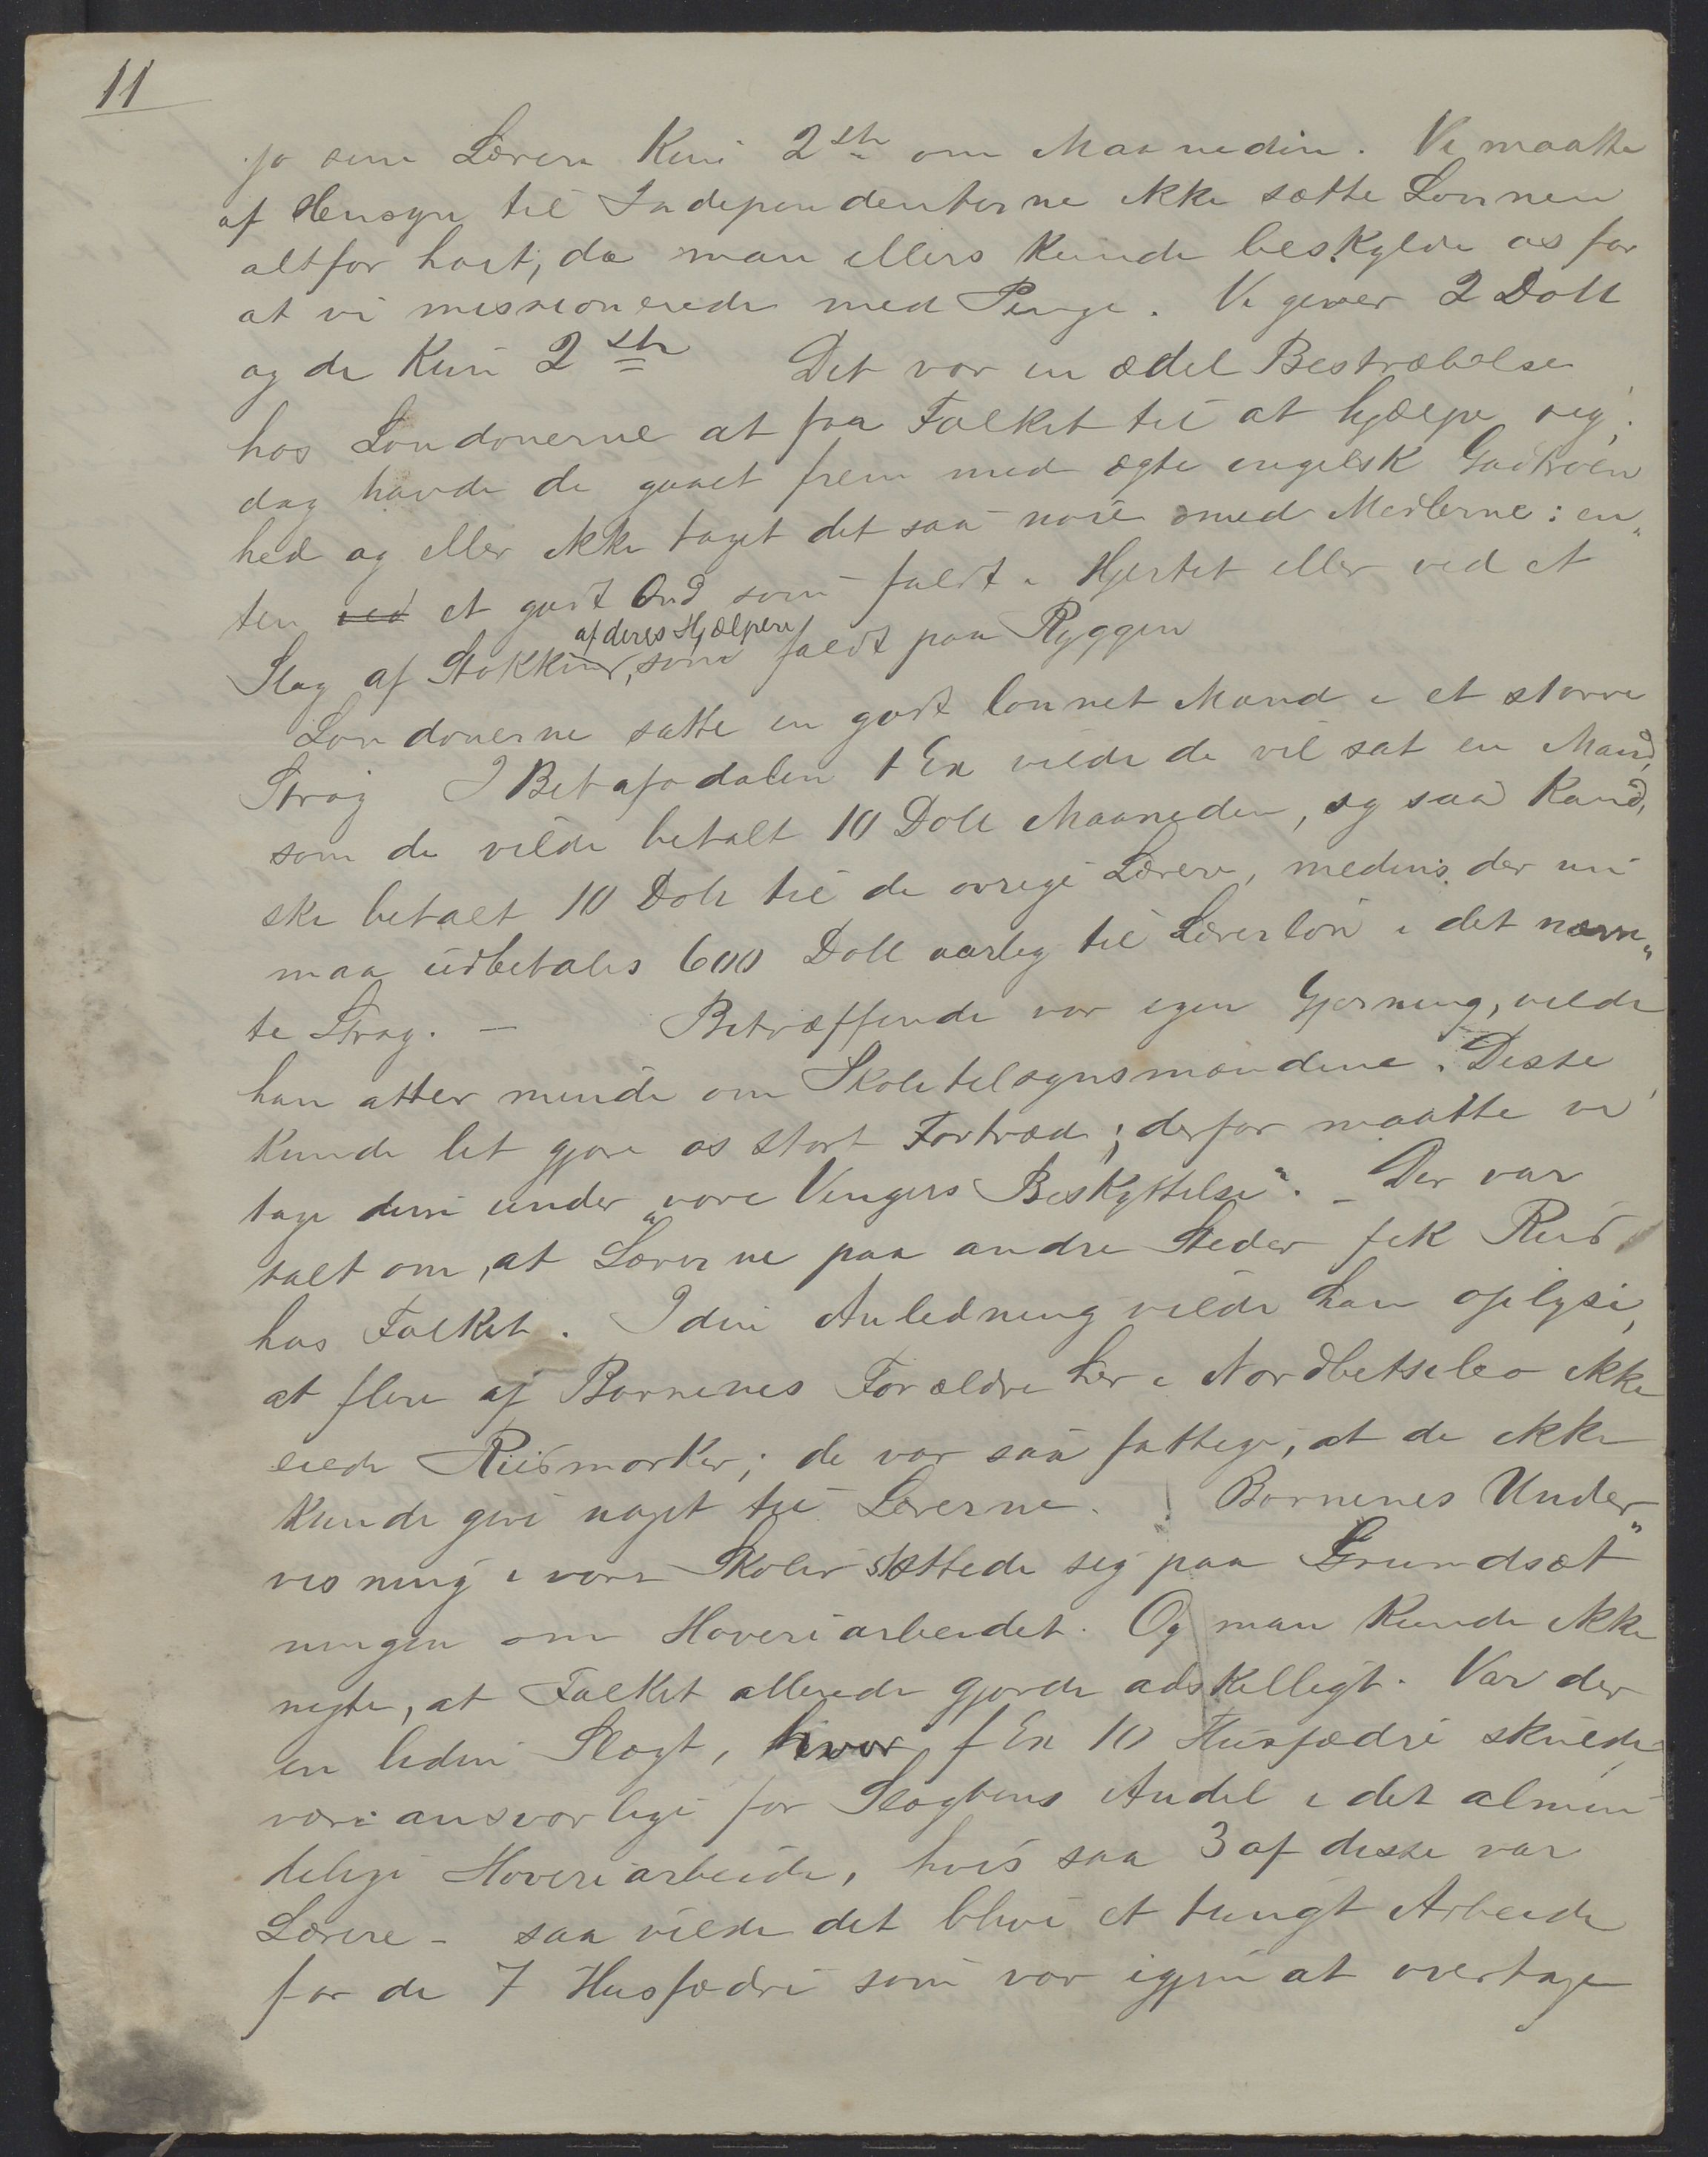 11
jo sine Lærere Kun 2 sh om Maaneden. Vi maatte
af Hensyn til Independenterne ikke sætte Lønnen
altfor høit, da man ellers kunde beskylde os for
at vi missionerede med Penge. Vi giver 2 Doll
og de Kun 2 sh Det var en ædel Bestræbelse
hos Londonerne at faa Folket til at hjælpe sig;
dog havde de gaaet frem med ægte engelsk Godtroen
hed og eller ikke taget det saa nøie med Midlerne: en„
ten ved et godt Ord som faldt i Hjertet eller ved et
af deres Hjælpere
Slag af Stokken, som faldt paa Ryggen
Londonerne satte en godt lønnet Mand i et større
Strøg I Betafodalen t Ex vilde de vel sat en Mand,
som de vilde betalt 10 Doll Maaneden, og saa Kand,
ske betalt 10 Doll til de øvrige Lærere, medens der nu
maa udbetales 600 Doll aarlig til Lærerløn i det nævn„
te Strøg. — Betræffende vor egen Gjerning, vilde
han atter minde om Skoletilsynsmændene. Disse
Kunde let gjøre os stort Fortræd; derfor maatte vi
tage dem under „vore Vingers Beskyttelse“. – Der var
talt om, at Lærerne paa andre Steder fik Riis
hos Folket. I den Anledning vilde han oplyse,
at flere af Børnenes Forældre her i Nordbetsileo ikke
eiede Riismarker; de var saa fattige, at de ikke
kunde give noget til Lærerne. Børnenes Under„
visning i vore Skoler støttede sig paa Grundsæt
ningen om Hoveriarbeidet. Og man Kunde ikke
negte, at Folket allerede gjorde adskilligt. Var der
en liden Slægt, hvor f Ex 10 Husfædre skulde
være ansvarlige for Slægtens Andel i det almin
delige Hoveriarbeide, hvis saa 3 af disse var
Lærere – saa vilde det blive et tungt Arbeide
for de 7 Husfædre som var igjen at overtage